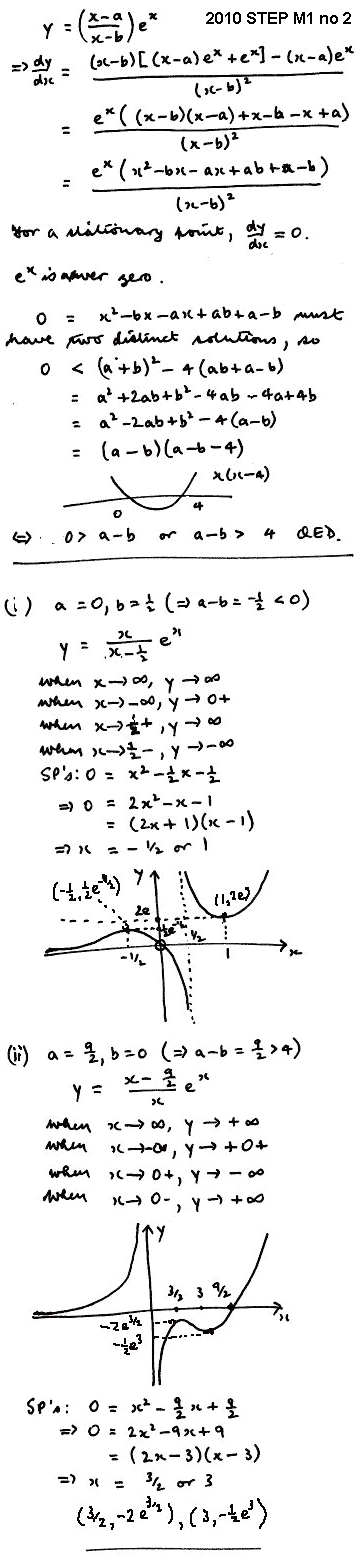 2010 STEP M1 no 2
y = ((x-a)/(x-b)) e^x
⇒ dy/dx = ((x-b)[(x-a)e^x + e^x] - (x-a)e^x)/(x-b)^2
= e^x((x-b)(x-a)+x-b-x+a)/(x-b)^2
= e^x(x^2-bx-ax+ab+a-b)/(x-b)^2
For a stationary point, dy/dx = 0.
e^x is never zero.
0 = x^2-bx-ax+ab+a-b must
have two distinct solutions, so
0 < (a+b)^2 - 4(ab+a-b)
= a^2+2ab+b^2-4ab-4a+4b
= a^2-2ab+b^2-4(a-b)
= (a-b)(a-b-4)
x(x-4)
0 4
⇔ 0 > a-b or a-b > 4 QED.
(i) a=0, b=1/2 (⇒ a-b = -1/2 < 0)
y = x/(x-1/2) e^x
when x→∞, y→∞
when x→-∞, y→0+
when x→1/2+, y→∞
when x→1/2-, y→-∞
SP's: 0 = x^2-1/2x-1/2
⇒ 0 = 2x^2-x-1
= (2x+1)(x-1)
⇒ x = -1/2 or 1
y
(-1/2, 1/2e^-1/2) (1,2e)
2e
1/2e^-1/2 1/2
-1/2 1 x
(ii) a = 9/2, b=0 (⇒ a-b = 9/2 > 4)
y = (x-9/2)/x e^x
when x→∞, y→+∞
when x→-∞, y→+0+
when x→0+, y→-∞
when x→0-, y→+∞
y
3/2 3 9/2
x
-2e^3/2
-1/2e^3
SP's: 0 = x^2-9/2x+9/2
⇒ 0 = 2x^2-9x+9
= (2x-3)(x-3)
⇒ x = 3/2 or 3
(3/2, -2e^3/2), (3, -1/2e^3)